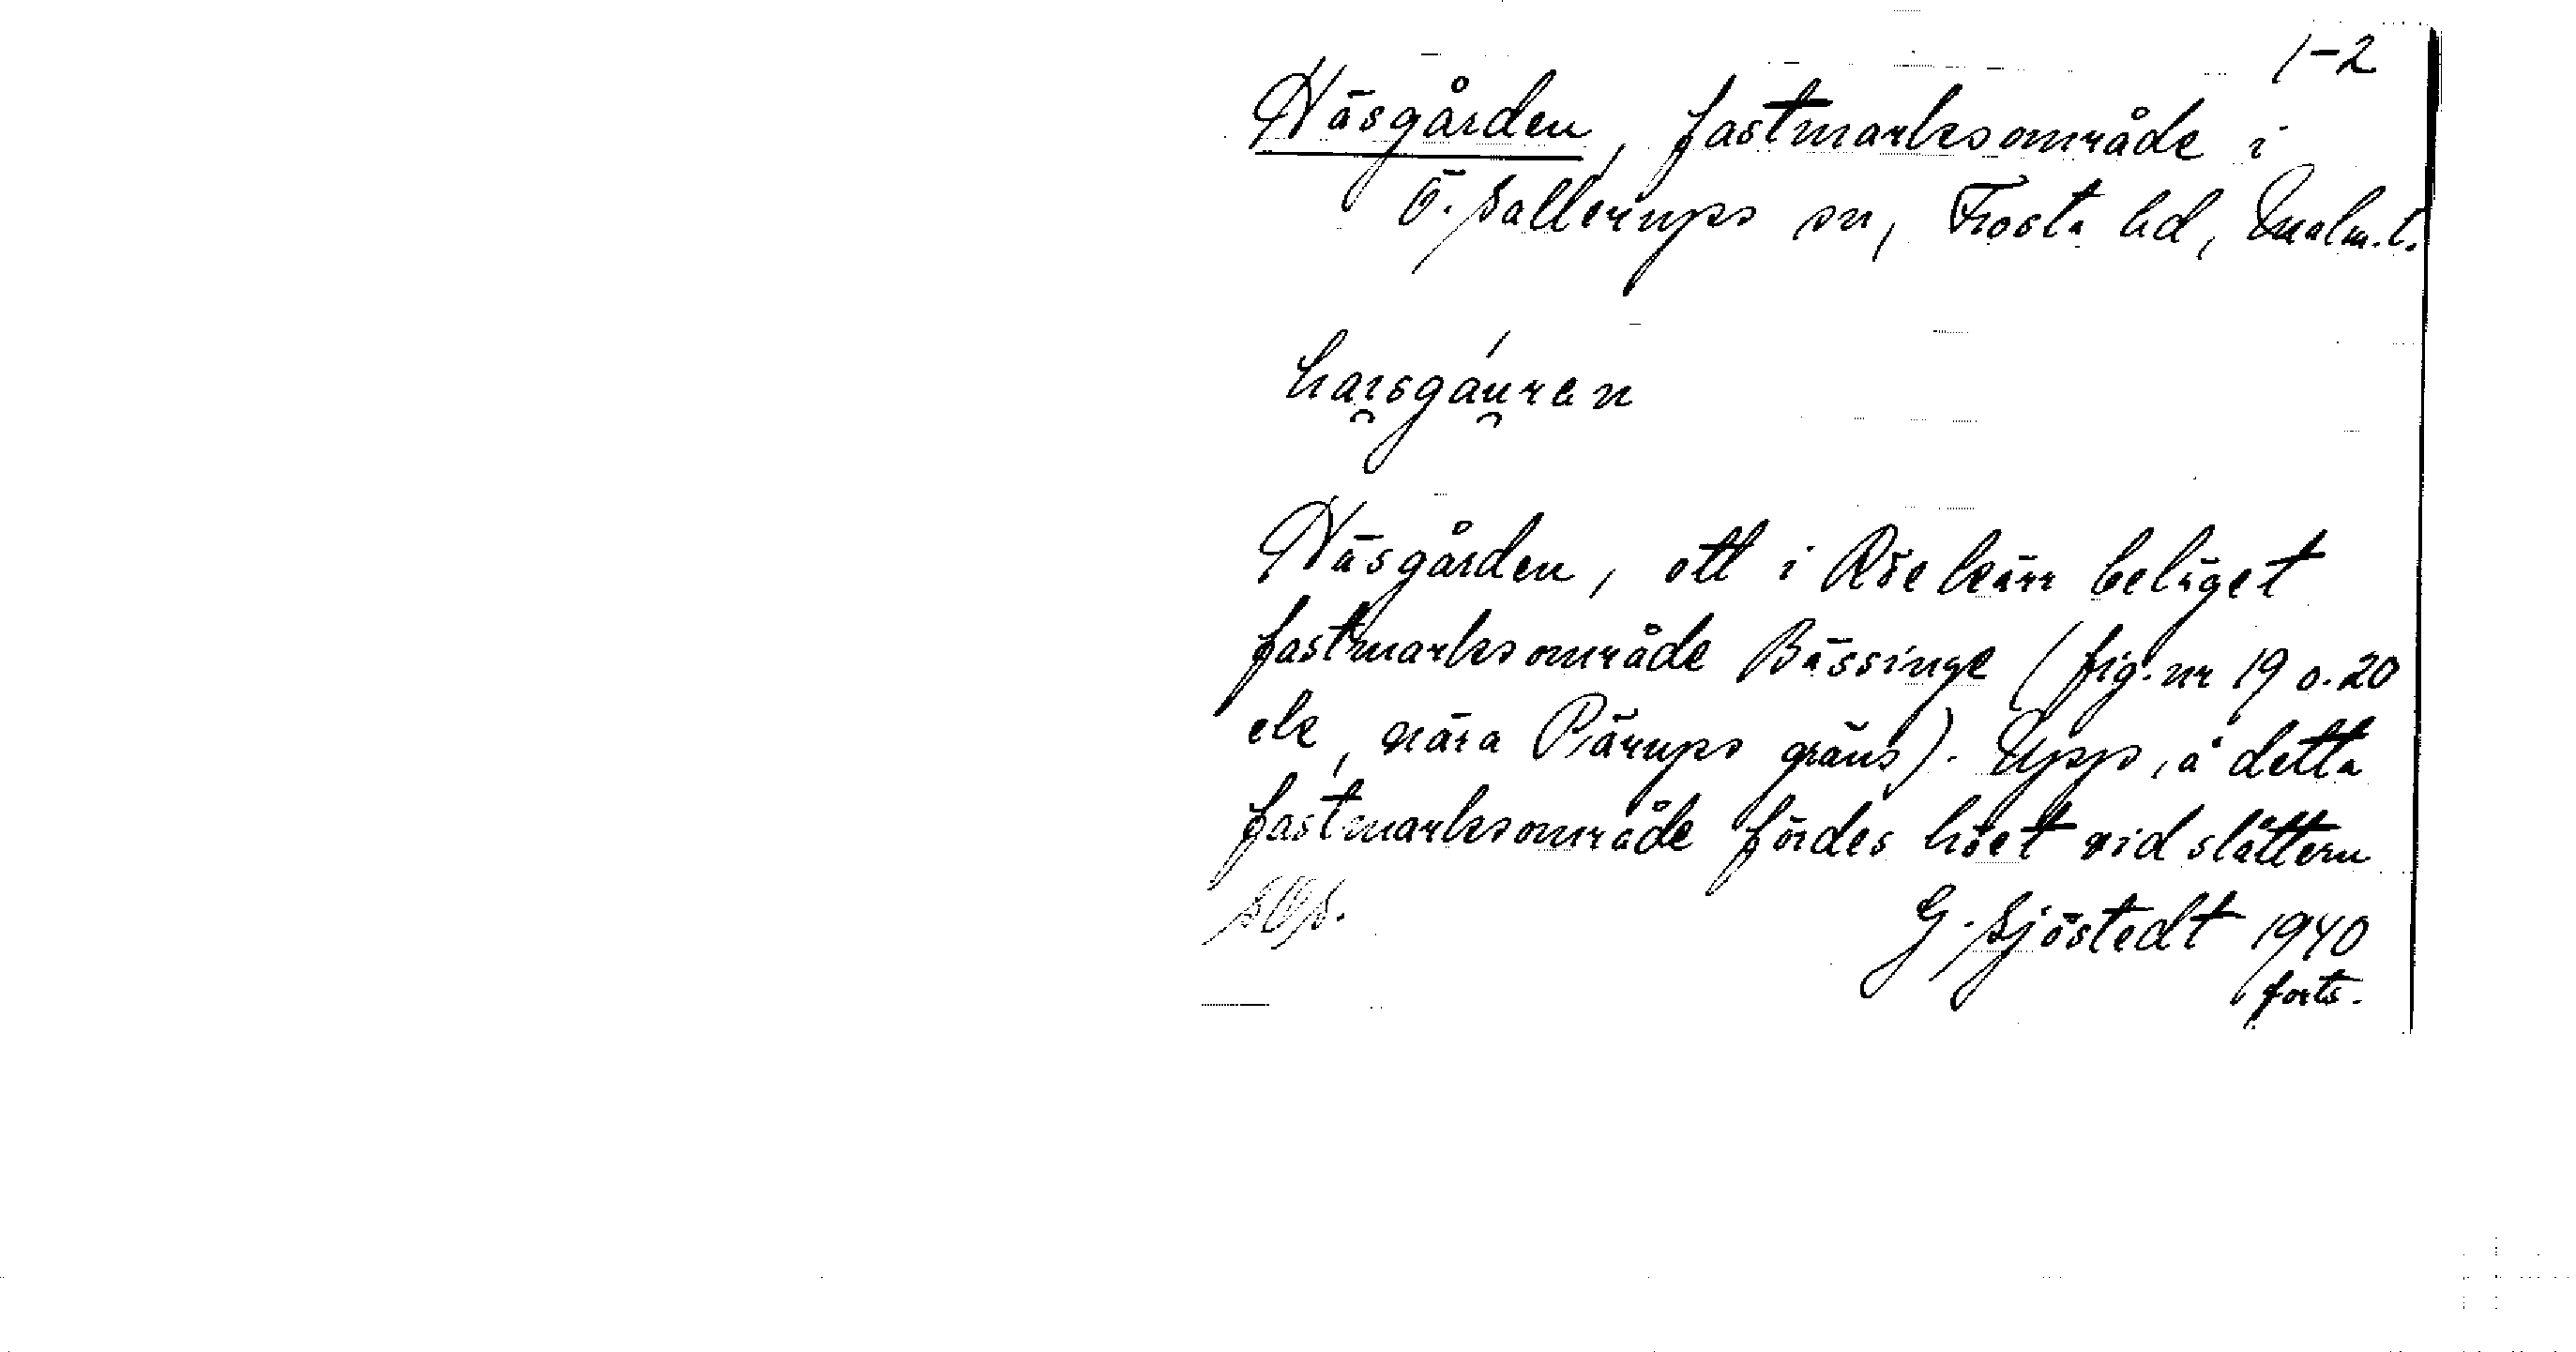 1-2
Häsgården, fastmarksområde i
Ö. Sallerups sn, Frosta hd, Malm. l.
hai̯sgáu̯ren
Häsgården, ett i Röekärr beläget
fastmarksområde Bässinge (fig. nr 19 o. 20
ek, nära Pärups gräns). Upp å detta
fastmarksområde fördes höet vid slåttern
G. Sjöstedt 1940
forts.